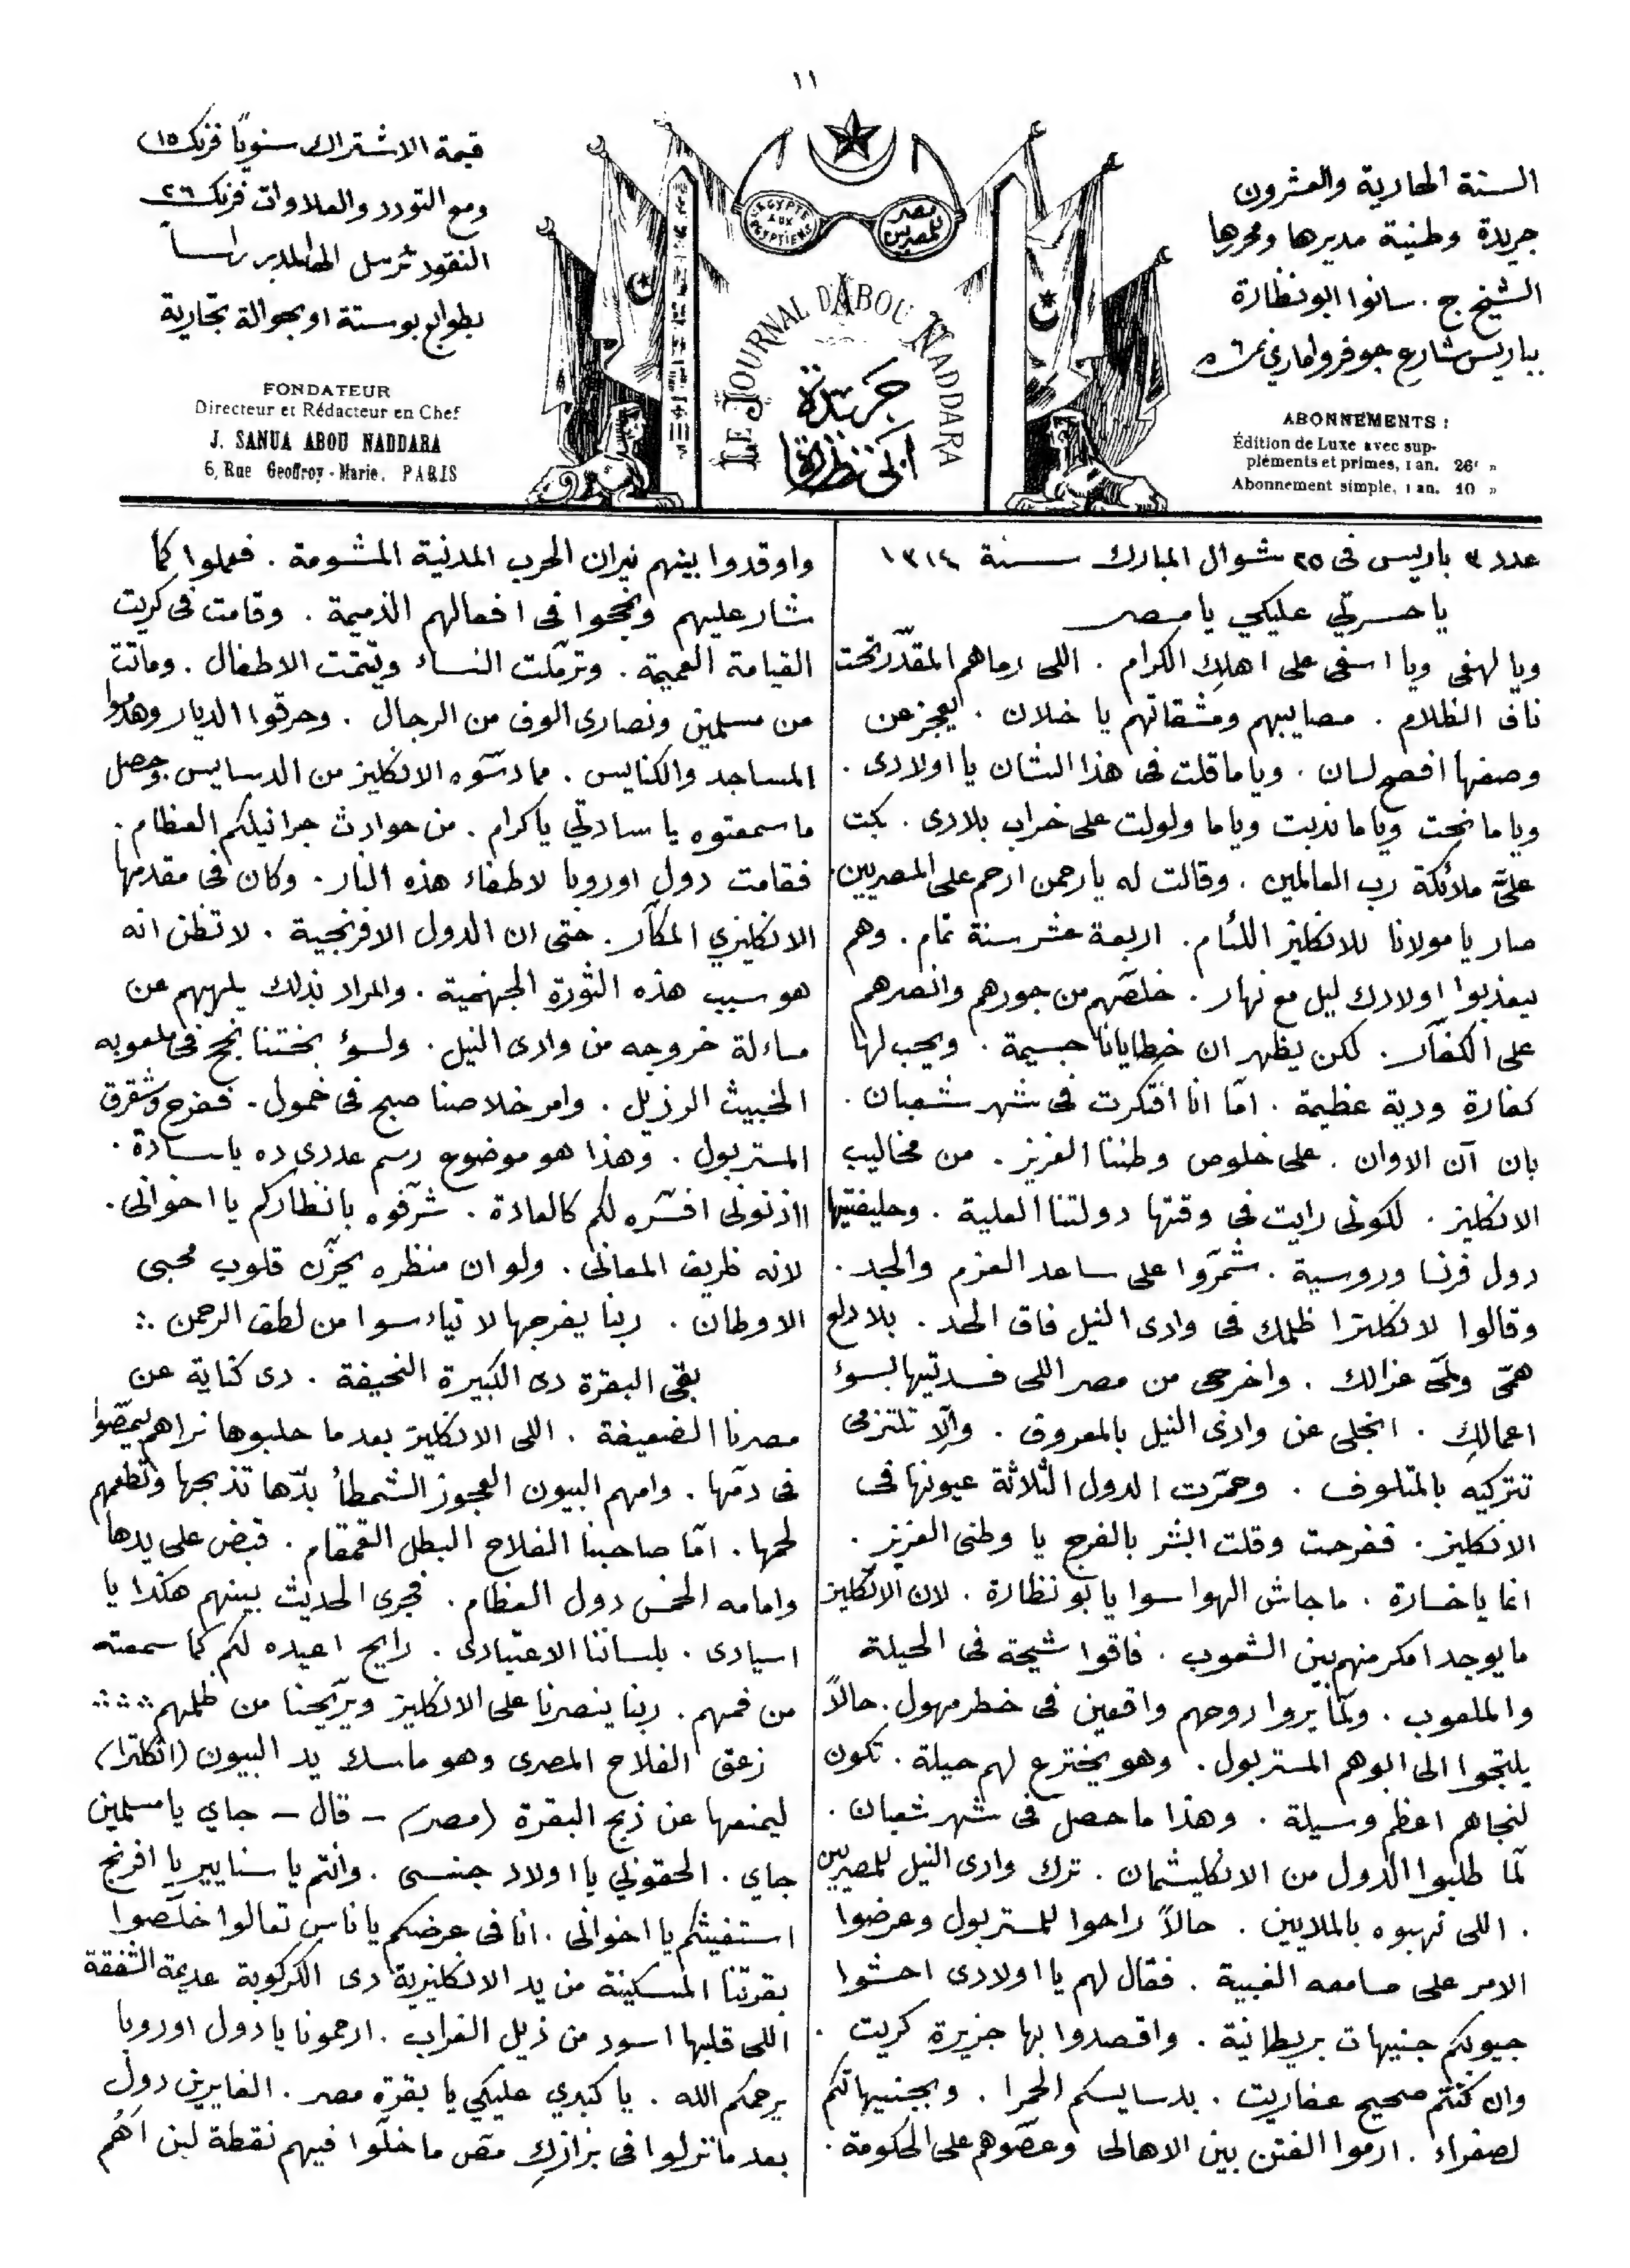 ١١
السنة الحادية والعشرون
جريدة وطنية مديرها ومحررها
الشيخ ج. سانوا ابو نظارة
بباريس شارع جوفروا ماري نمرة ٦
ABONNEMENTS :
Édition de Luxe avec sup-
pléments et primes, 1 an. 26f »
Abonnement simple, 1 an. 10 »
مصر للمصريين
L'EGYPTE AUX EGYPTIENS
LE JOURNAL D'ABOU NADDARA
جريدة
ابى نظارة
قيمة الاشتراك سنويًا فرنك ١٥
ومع التودد والعلاوات فرنك ٢٦
النقود ترسل الى المدير راساً
بطوابع بوستة او بحوالة تجارية
FONDATEUR
Directeur et Rédacteur en Chef
J. SANUA ABOU NADDARA
6, Rue Geoffroy-Marie, PARIS
عدد ٣ باريس فى ٢٥ شوال المبارك سنة ١٣١٤
يا حسرتي عليكي يا مصر
ويا لهفى ويا اسفى على اهلك الكرام . اللى رماهم المقدّر تحت
ناف الظلام . مصايبهم ومشقاتهم يا خلان . يعجز عن
وصفها افصح لسان . وياما قلت فى هذا الشان يا اولادى .
وياما نحت وياما ندبت وياما ولولت على خراب بلادى . بكت
علىّ ملائكة رب العالمين . وقالت له يا رحمن ارحم على المصريين .
صار يا مولانا للانكليز اللئام . اربعة عشر سنة تمام . وهم
بيعذبوا اولادك ليل مع نهار . خلصّهم من جورهم وانصرهم
على الكفّار . لكن يظهر ان خطايانا جسيمة . ويجب لها
كفارة ودية عظيمة . امّا انا افتكرت فى شهر شعبان .
بان آن الاوان . على خلوص وطننا العزيز . من مخاليب
الانكليز . لكونى رايت فى وقتها دولتنا العلية . وحليفتيها
دول فرنسا وروسية . شمّروا على ساعد العزم والجد .
وقالوا لانكلترا ظلمك فى وادى النيل فاق الحد . بلا دلع
همّى ولمّى عزالك . واخرجى من مصر اللى فسدتيها بسوء
اعمالكِ . انجلى عن وادى النيل بالمعروف . والّا تلتزمى
تتركيه بالمتلوف . وحمّرت الدول الثلاثة عيونها فى
الانكليز . ففرحت وقلت ابشر بالفرج يا وطنى العزيز .
انما يا خسارة . ما جاش الهوا سوا يا بو نظارة . لان الانكليز
ما يوجد امكر منهم بين الشعوب . فاقوا شيحة فى الحيلة
والملعوب . ولمّا يروا روحهم واقعين فى خطر مهول . حالاً
يلتجوا الى ابوهم المستر بول . وهو يخترع لهم حيلة . تكون
لنجاهم اعظم وسيلة . وهذا ما حصل فى شهر شعبان .
لمّا طلبوا الدول من الانكليشمان . ترك وادى النيل للمصريين
. اللى نهبوه بالملايين . حالاً راحوا للمستر بول وعرضوا
الامر على مسامعه الغبية . فقال لهم يا اولادى احشوا
جيوبكم جنيهات بريطانية . واقصدوا بها جزيرة كريت .
وان كنتم صحيح عفاريت . بدسايسكم الحمرا . وبجنيهاتكم
لصفراء . ارموا الفتن بين الاهالى وعصّوهم على الحكومة .
واوقدوا بينهم نيران الحرب المدنية المشومة . فعملوا كما
شار عليهم ونجحوا فى افعالهم الذميمة . وقامت فى كريت
القيامة العميمة . وترمّلت النساء ويتّمت الاطفال . وماتت
من مسلمين ونصارى الوف من الرجال . وحرقوا الديار وهدّموا
المساجد والكنايس . مما دسّوه الانكليز من الدسايس . وحصل
ما سمعتوه يا سادتي يا كرام . من حوادث جرانيلكم العظام .
فقامت دول اوروبا لاطفاء هذه النار . وكان فى مقدمها
الانكليزي المكّار . حتى ان الدول الافرنجية . لا تظن انه
هو سبب هذه الثورة الجهنمية . والمراد بذلك يلهيهم عن
مسائلة خروجه من وادى النيل . ولسوء بختنا نجح فى ملعوبه
الخبيث الرزيل . وامر خلاصنا صبح فى خمول . ففرح وشقرق
المستر بول . وهذا هو موضوع رسم عددى ده يا سادة .
ااذنونى افسّره لكم كالعادة . شرّفوه بانظاركم يا اخوانى .
لانه ظريف المعانى . ولو ان منظره يحزّن قلوب محبى
الاوطان . ربنا يفرجها لا تياءسوا من لطف الرحمن ∴
بقى البقرة دى الكبيرة النحيفة . دى كناية عن
مصرنا الضعيفة . اللى الانكليز بعد ما حلبوها نراهم بيمصّوا
فى دمّها . وامهم البيون العجوز الشمطاْ بدّها تذبحها وتطعمهم
لحمها . امّا صاحبنا الفلاح البطل القمقام . قبض على يدها
وامامه الخمس دول العظام . فجرى الحديث بينهم هكذا يا
اسيادى . بلساننا الاعتيادى . رايح اعيده لكم كما سمعته
من فمهم . ربنا ينصرنا على الانكليز ويريّحنا من ظلمهم
زعق الفلاح المصرى وهو ماسك يد البيون (انكلترا)
ليمنعها عن ذبح البقرة (مصر) — قال — جاي يا مسلمين
جاي . الحقوني يا اولاد جنسى . وانتم يا سنايير يا افرنج
استغيثكم يا اخوانى . انا فى عرضكم يا ناس تعالوا خلّصوا
بقرتنا المسكينة من يد الانكليزية دى الكركوبة عديمة الشفقة
اللى قلبها اسود من ذيل الغراب . ارحمونا يا دول اوروبا
يرحمكم الله . يا كبدي عليكي يا بقرة مصر . الغايرين دول
بعد ما نزلوا فى بزازكِ مصّ ما خلّوا فيهم نقطة لبن اهُم